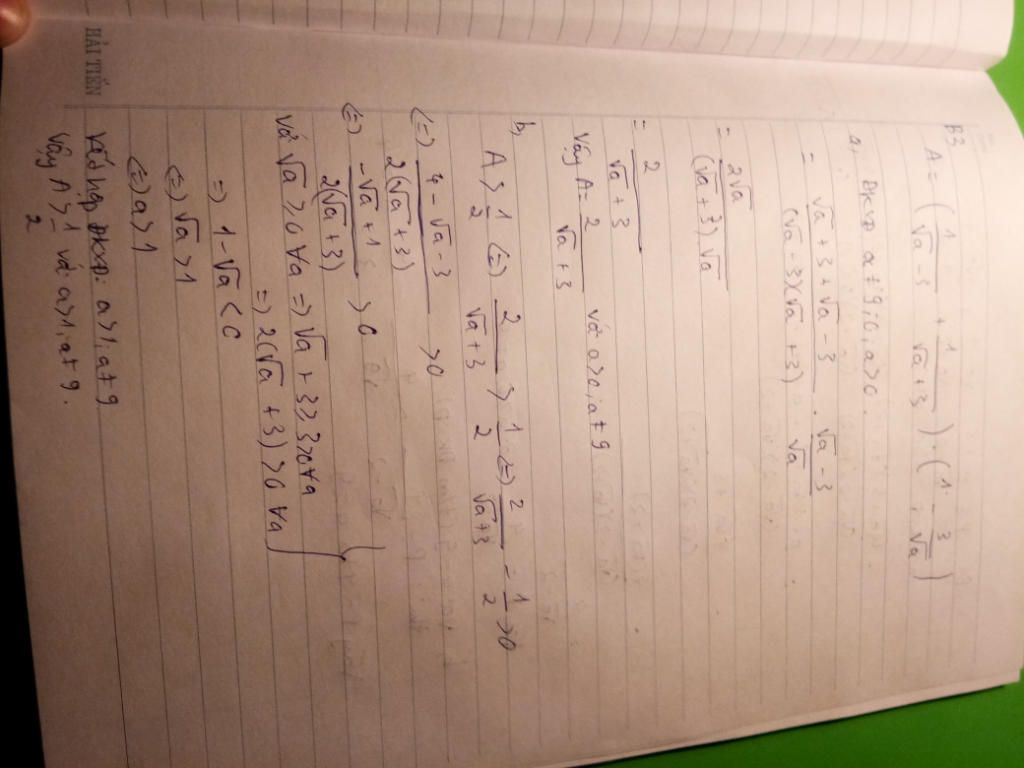 B3
A = (1/(√a - 3) + 1/(√a + 3)) · (1 - 3/√a)
a, ĐKXĐ a ≠ 9; 0, a > 0.
= (√a + 3 + √a - 3)/((√a - 3)(√a + 3)) · (√a - 3)/√a
= 2√a/((√a + 3)√a)
= 2/(√a + 3)
Vậy A = 2/(√a + 3) với a > 0, a ≠ 9
b, A > 1/2 (=) 2/(√a + 3) > 1/2 (=) 2/(√a + 3) = 1/2 > 0
(=) (4 - √a - 3)/(2(√a + 3)) > 0
(=) (-√a + 1)/(2(√a + 3)) > 0
Vì √a ≥ 0 ∀a => √a + 3 ≥ 3 > 0 ∀a
=> 2(√a + 3) > 0 ∀a
=> 1 - √a < 0
(=) √a > 1
(=) a > 1
Kết hợp ĐKXĐ: a > 1, a ≠ 9
Vậy A > 1/2 với a > 1, a ≠ 9.
HẢI TIẾN